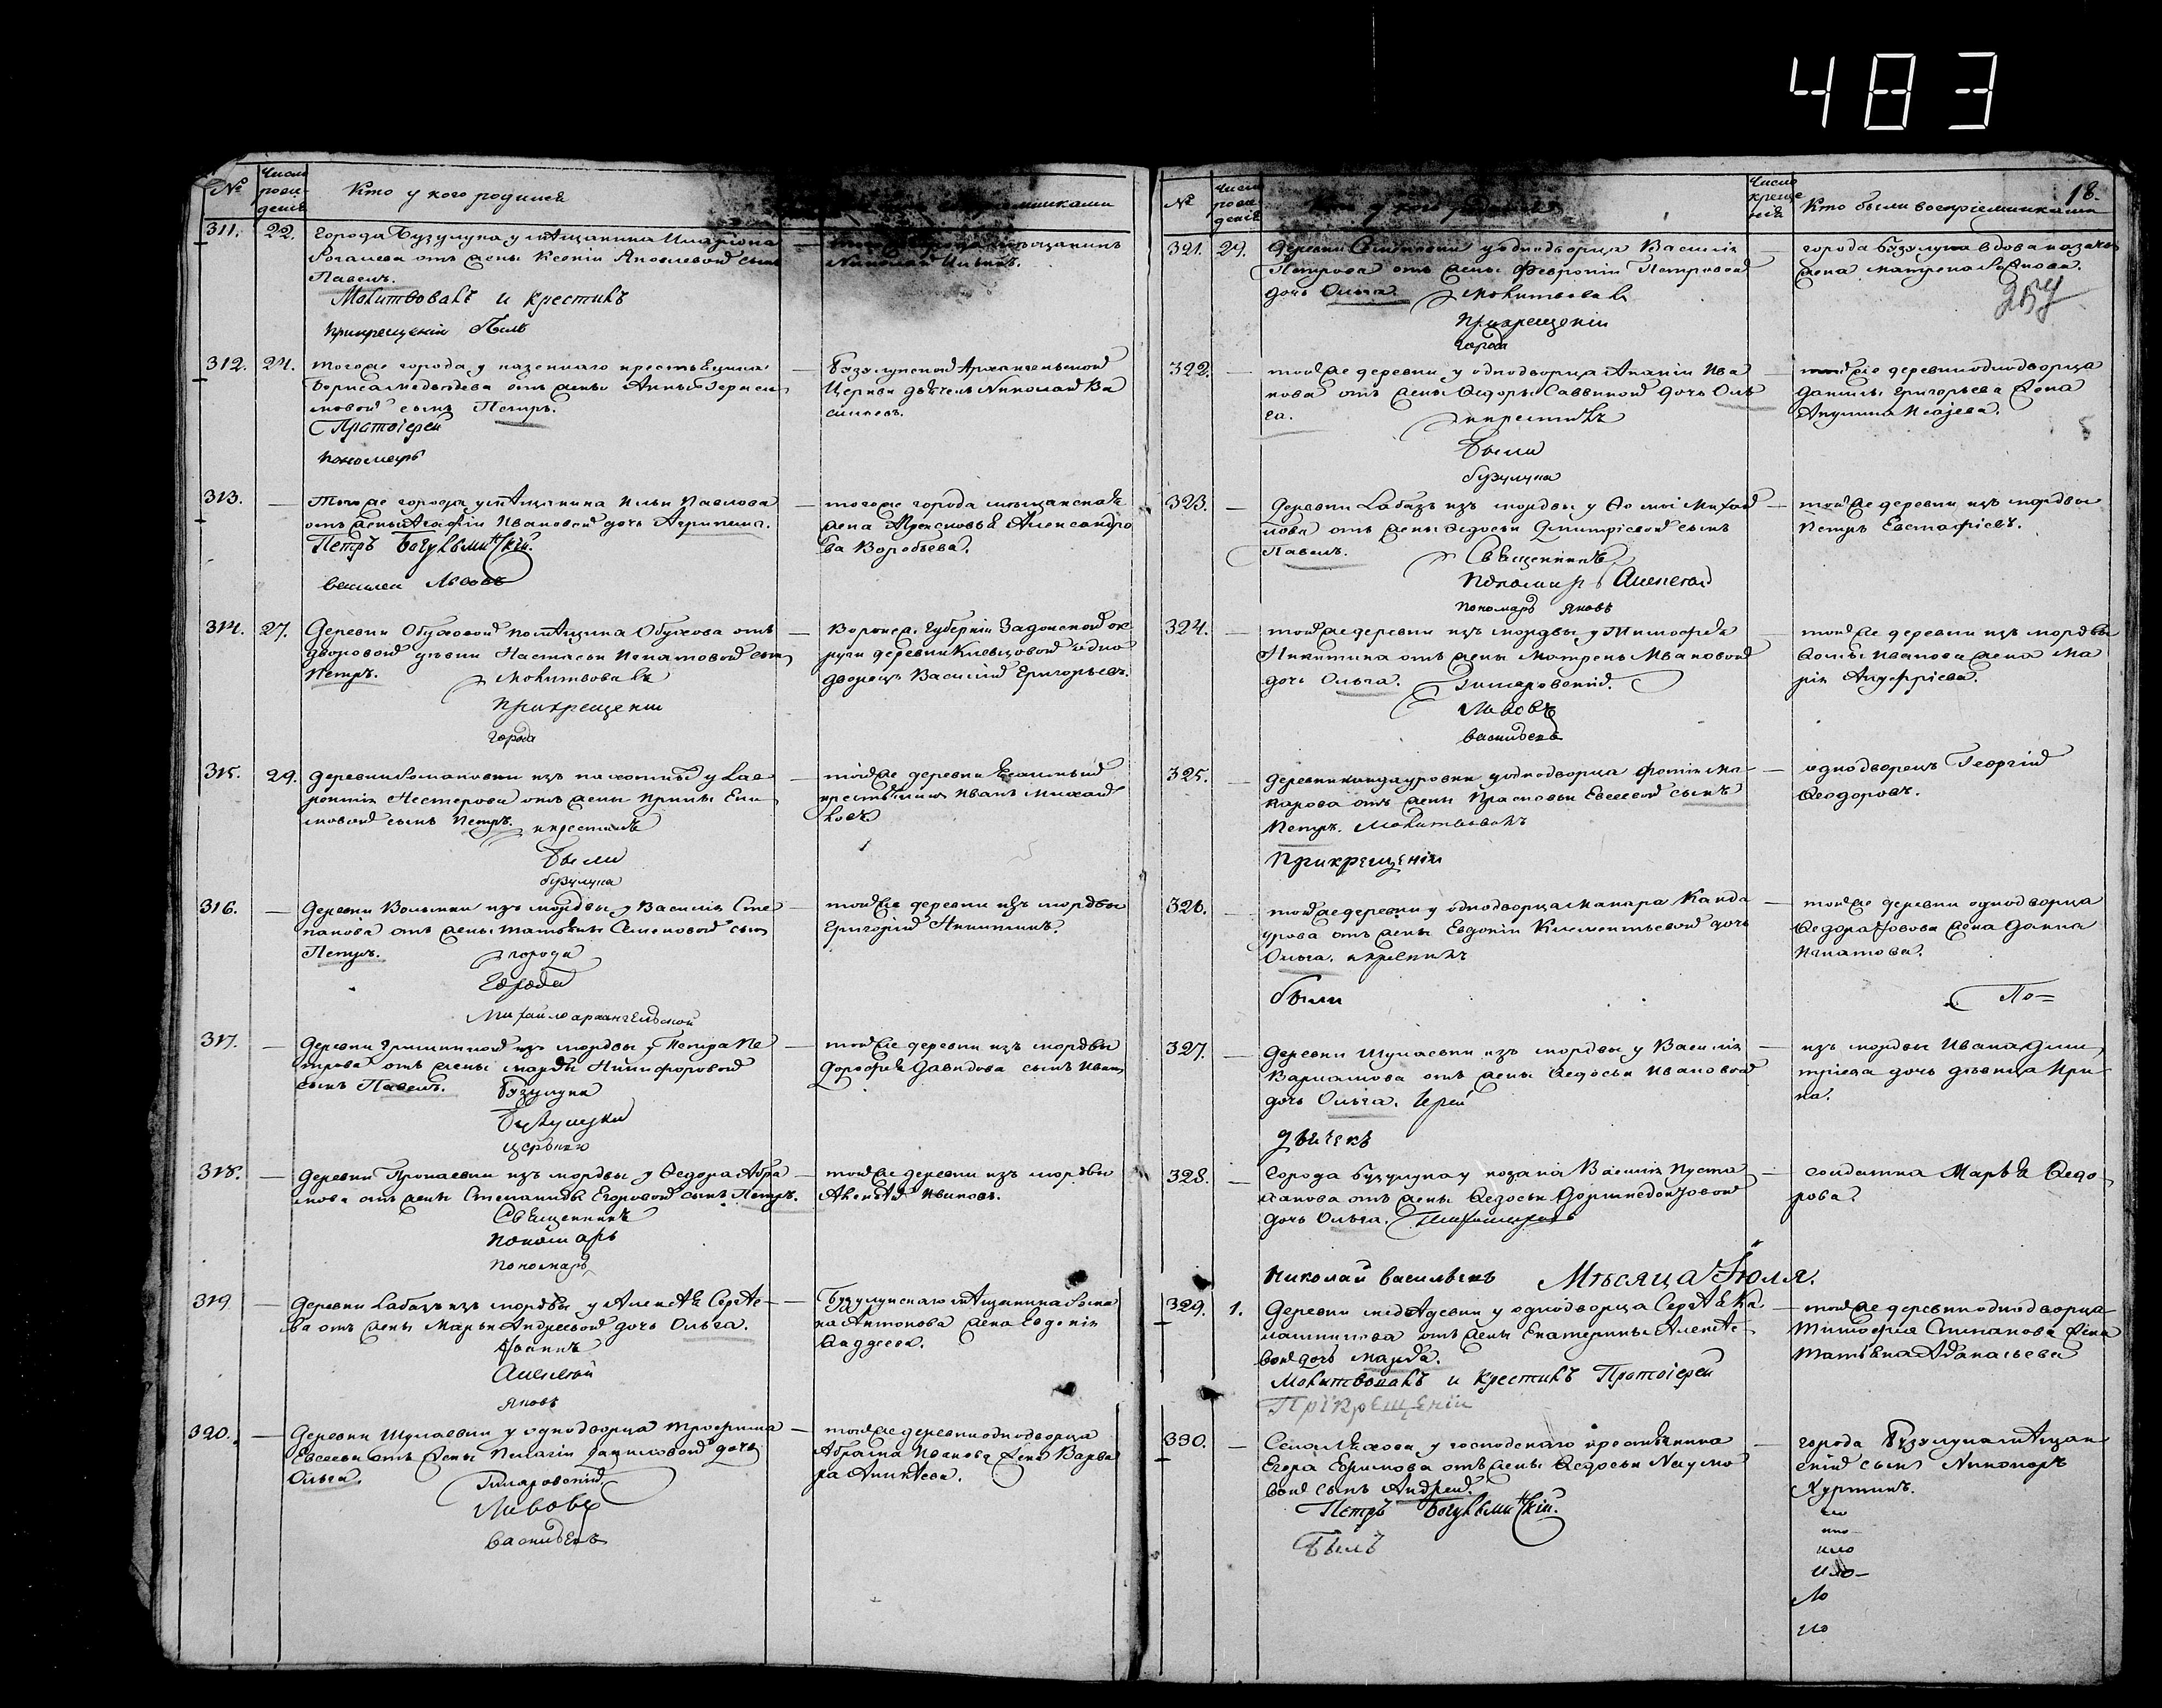 483
№
Число рождения
Кто у кого родился
воспріемниками
311.
22.
города Бузулука у мѣщанина Иларіона
Рогачева отъ жены Ксеніи Яковлевой сынъ
Павелъ.
Молитвовалъ и крестилъ
При крещеніи былъ
того же города мѣщанинъ
Николай Ильинъ.
312.
24.
того же города у казеннаго крестьянина
Бориса Медвѣдева отъ жены Анны Гераси
мовой сынъ Петръ.
Протоіерей
пономарь
Бузулукской Архангельской
Церкви дьячекъ Николай Ва
сильевъ.
313.
—
Того же города у мѣщанина Ильи Павлова
отъ жены Агафіи Ивановой дочь Агрипина.
Петръ Богульминскій.
Василей Львовъ
того же города мѣщанская
жена Парасковья Александро
ва Воробьева.
314.
27.
Деревни Обуховой помѣщика Обухова отъ
дворовой дѣвки Настасьи Игнатовой сынъ
Петръ.
Молитвовалъ
При крещеніи
города
Воронеж. Губерніи Задонской ок
руги деревни одно
дворецъ Василій Григорьевъ.
315.
29.
деревни Романовки изъ пахотныхъ у Лав
рентія Нестерова отъ жены Ирины Еки
мовой сынъ Петръ.
и крестилъ
Были
бузулука
той же деревни казенный
крестьянинъ Иванъ Михай
ловъ
316.
—
Деревни Вольники изъ мордвы у Василія Сте
панова отъ жены Татьяны Семеновой сынъ
Петръ.
города
города
Михайлоархангельской
той же деревни изъ мордвы
Григорій Никитинъ.
317.
—
Деревни Гришкиной изъ мордвы у Петра Пе
трова отъ жены Марфы Никифоровой
сынъ Павелъ.
Бузулука
Бузулуцки
церькви
той же деревни изъ мордвы
Дорофея Давыдова сынъ Иванъ
318.
—
Деревни Пронаевки изъ мордвы у Федора Абра
мова отъ жены Степаниды Егоровой сынъ Петръ.
Священникъ
Пономарь
пономарь
той же деревни изъ мордвы
Алексѣй Ивановъ.
319
—
Деревни Лабазъ изъ мордвы у Алексѣя Сергѣе-
ва отъ жены Марьи Андреевой дочь Ольга.
Іоаннъ
Алексѣй
Яковъ
Бузулукскаго мѣщанина Рома
на Антонова жена Евдокія
Фаддеева.
320.
—
Деревни Шулаевки у однодворца Трофима
Евсеева отъ жены Пелагіи Даниловой дочь
Ольга.
Гиларовскій
Львовъ
васильевъ
той же деревни однодворца
Абрама Иванова жена Варва
ра Аникѣева.
№
Число рожденія
Кто у кого родился
Число крещенія
Кто были воспріемниками
18.
321.
29.
Деревни у однодворца Василія
Петрова отъ жены Февроніи Петровой
дочь Ольга.
Молитвовалъ
При крещеніи
города
города Бузулука вдова казачья
жена Матрена
322.
—
той же деревни у однодворца Ананіи Ива
нова отъ жены Федоры Саввиной дочь Оль
га.
и крестилъ
Были
бузулука
той же деревни однодворца
Данилы Григорьева жена
Акулина Исаева.
323.
—
Деревни Лабазъ изъ мордвы у Фомы Михай
лова отъ жены Федосьи Дмитріевой сынъ
Павелъ.
Священникъ
Пономарь Алексѣй
пономарь Яковъ
той же деревни изъ мордвы
Петръ Евстафіевъ.
324.
—
той же деревни изъ мордвы у Тимофея
Никитина отъ жены Матрены Ивановой
дочь Ольга.
Гиларовскій.
Львовъ
васильевъ
той же деревни изъ мордвы
Фомы Иванова жена Ма
рія Ануфріева.
325.
—
деревни Кандауровки у однодворца Фотія Ма-
карова отъ жены Прасковьи Евсеевой сынъ
Петръ. Молитвовалъ
При крещеніи
однодворецъ Георгій
Феодоровъ.
326.
—
той же деревни у однодворца Макара Канда
урова отъ жены Евдокіи Климентьевой дочь
Ольга. и крестилъ
были
той же деревни однодворца
Федора жена Дарья
Игнатова.
По=
327.
—
Деревни Шулаевки изъ мордвы у Василія
Варламова отъ жены Федосьи Ивановой
дочь Ольга. Іерей
дьячекъ
изъ мордвы Ивана Дми
тріева дочь дѣвица Ири
на.
328.
—
города Бузулука у козака Василія Пуста
ханова отъ жены Федосьи
дочь Ольга.
Николай васильевъ
солдатка Марья Федо
рова.
Мѣсяца Іюля.
329.
1.
Деревни Медвѣдевки у однодворца Сергѣя Ка
лашникова отъ жены Екатерины Алексѣе-
вой дочь Марфа.
Молитвовалъ и крестилъ Протоіерей
При крещеніи
той же деревни однодворца
Тимофея Степанова жена
Татьяна Афанасьева
330.
—
Села Ляхова у господскаго крестьянина
Егора Ефимова отъ жены Федосьи Наумо
вой сынъ Андрей.
Петръ Богульминскій.
Былъ
города Бузулука мѣщан
скій сынъ Никаноръ
Куртинъ.